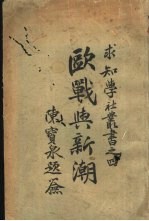 求知學社叢書之四
歐戰與新潮
陳寶泉題簽